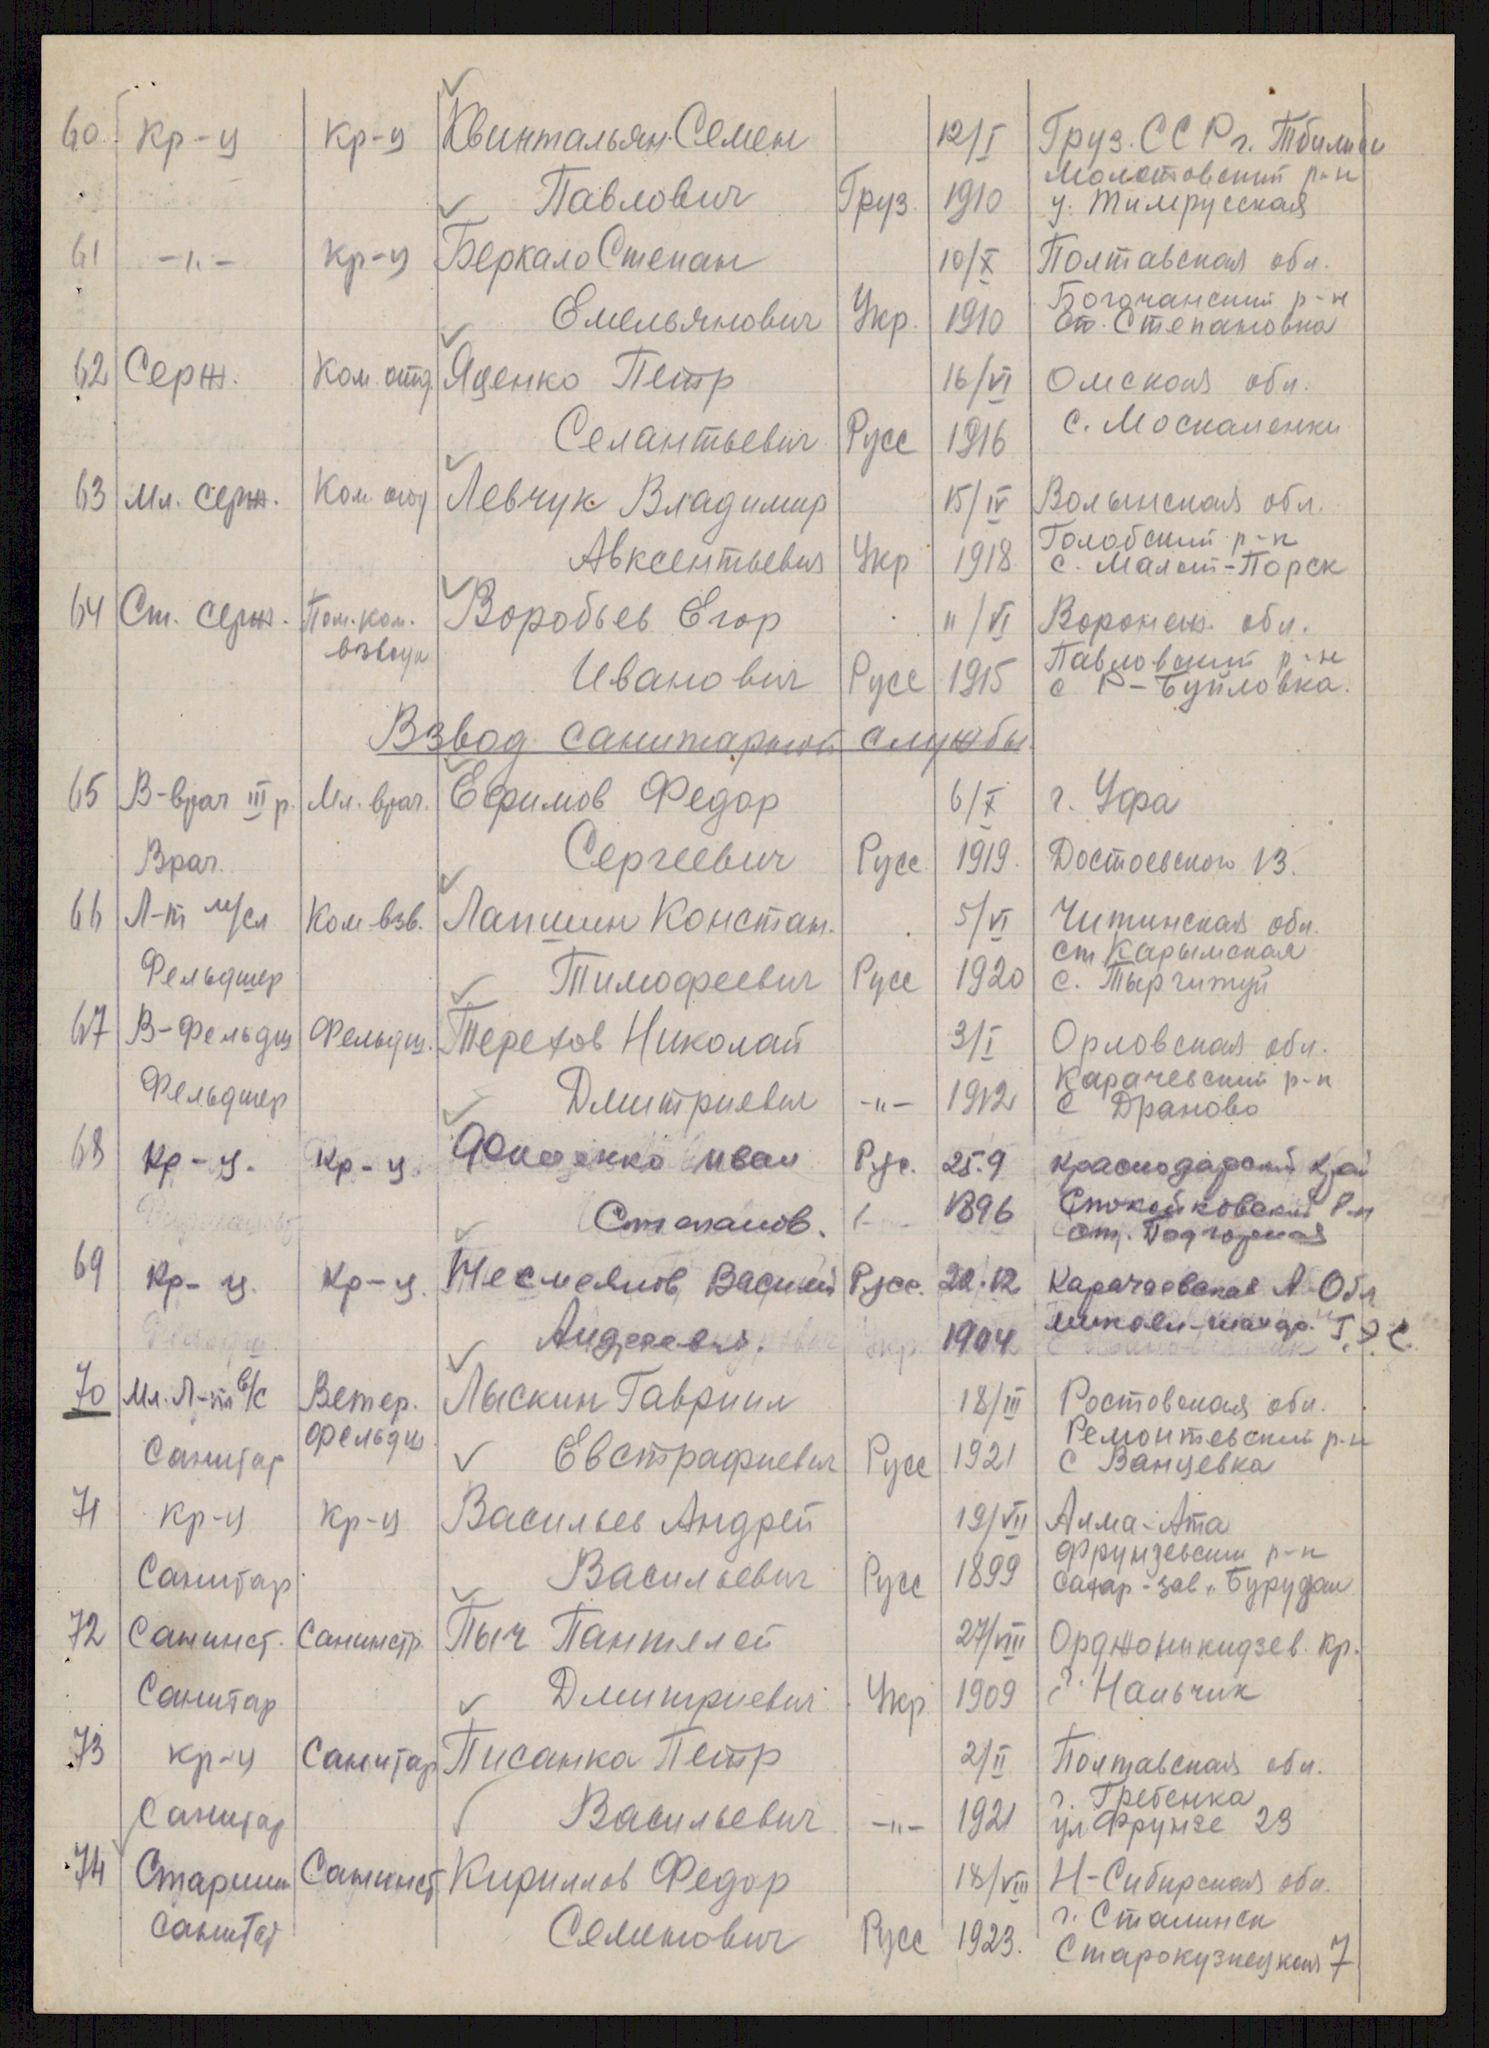 60. Кр-ц Кр-ц Квинтальян Семен 12/I Груз. ССР г. Тбилиси
Молотовский р-н
Павлович Груз. 1910 у.
61 -"- Кр-ц Беркало Степан 10/X Полтавская обл.
Богочанский р-н
Емельянович Укр. 1910 ст. Степановка
62 Серж. Ком. отд. Яценко Петр 16/VI Омская обл.
Селантьевич Русс 1916 с. Москаленки
63 Мл. серж. Ком. отд Левчук Владимир 15/IV Волынская обл.
Голобский р-н
Авксентьевич Укр 1918 с. Малот-Порск
64 Ст. серж. Пом. ком. Воробьев Егор 11/VI Воронеж. обл.
взвода Павловский р-н
Иванович Русс 1915 с Р-Буйловка.
Взвод санитарной службы.
65 В-врач III р. Мл. врач. Ефимов Федор 6/X г. Уфа
Врач. Сергеевич Русс 1919. Достоевского 13.
66 Л-т м/сл Ком. взв. Лапшин Констан. 5/VI Читинская обл.
ст Карымская
Фельдшер Тимофеевич Русс 1920 с. Тыргитуй
67 В-Фельдш Фельдш. Терехов Николай 3/I Орловская обл.
Карачевский р-н
Фельдшер Дмитриевич -"- 1912 с Драново
68 Кр-ц. Кр-ц Фищенко Иван Рус. 25.9 Краснодарский край
Степанов. 1896 Спокойновский Р-н
ст. Подгорная
69 Кр-ц. Кр-ц. Несмеянов Василий Русс. 22.12 Карачаевская А. Обл
Андреевич. 1904 Г.Э.С.
70 Мл. Л-т в/с Ветер. Лыскин Гавриил 18/III Ростовская обл.
фельдш. Ремонтевский р-н
Санитар Евстрафиевич Русс 1921 с Ванцевка
71 Кр-ц Кр-ц Васильев Андрей 19/VII Алма-Ата
Фрунзевский р-н
Санитар Васильевич Русс 1899 сахар-зав. Бурудай
72 Санинст. Санинстр. Пыч Пантелей 27/VIII Орджоникидзев. кр.
Санитар Дмитриевич Укр 1909 г. Нальчик
73 Кр-ц Санитар Писанка Петр 2/II Полтавская обл.
г. Гребенка
Санитар Васильевич -"- 1921 ул Фрунзе 23
74 Старшин Санинст Кириллов Федор 18/VIII Н-Сибирская обл.
г. Сталинск
санитар Семенович Русс 1923. Старокузнецкая 7